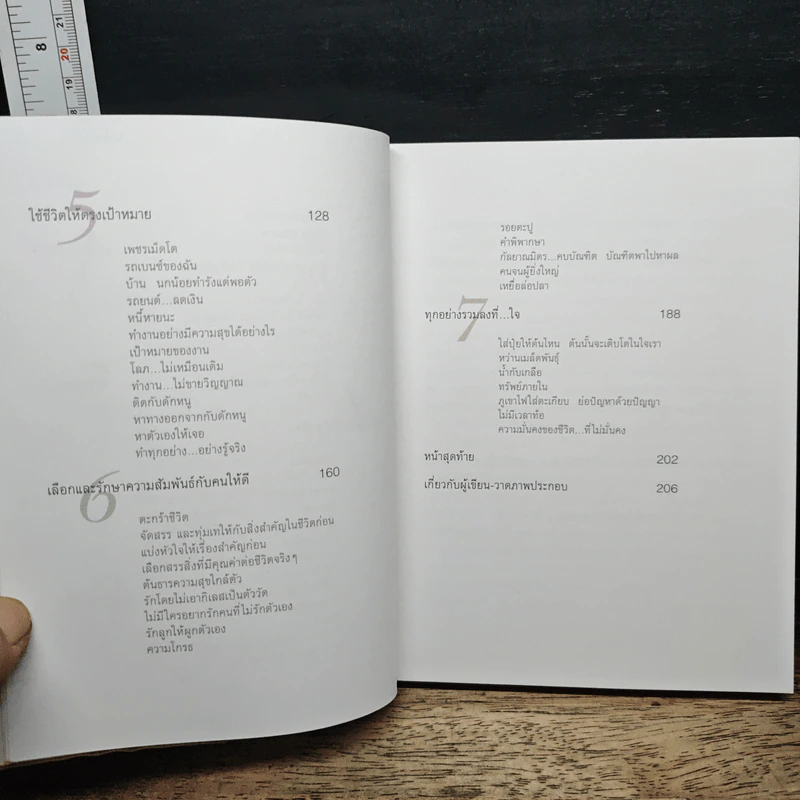 8
20
19
8
5
ใช้ชีวิตให้ตรงเป้าหมาย 128
เพชรเม็ดโต
รถเบนซ์ของฉัน
บ้าน นกน้อยทำรังแต่พอตัว
รถยนต์...ลดเงิน
หนี้หายนะ
ทำงานอย่างมีความสุขได้อย่างไร
เป้าหมายของงาน
โลภ...ไม่เหมือนเดิม
ทำงาน...ไม่ขายวิญญาณ
ติดกับดักหนู
หาทางออกจากกับดักหนู
หาตัวเองให้เจอ
ทำทุกอย่าง...อย่างรู้จริง
6
เลือกและรักษาความสัมพันธ์กับคนให้ดี 160
ตะกร้าชีวิต
จัดสรร และทุ่มเทให้กับสิ่งสำคัญในชีวิตก่อน
แบ่งหัวใจให้เรื่องสำคัญก่อน
เลือกสรรสิ่งที่มีคุณค่าต่อชีวิตจริงๆ
ต้นธารความสุขใกล้ตัว
รักโดยไม่เอากิเลสเป็นตัววัด
ไม่มีใครอยากรักคนที่ไม่รักตัวเอง
รักลูกให้ผูกตัวเอง
ความโกรธ
รอยตะปู
คำพิพากษา
กัลยาณมิตร...คบบัณฑิต บัณฑิตพาไปหาผล
คนจนผู้ยิ่งใหญ่
เหยื่อล่อปลา
7
ทุกอย่างรวมลงที่...ใจ 188
ใส่ปุ๋ยให้ต้นไหน ต้นนั้นจะเติบโตในใจเรา
หว่านเมล็ดพันธุ์
น้ำกับเกลือ
ทรัพย์ภายใน
ภูเขาไฟใส่ตะเกียบ ย่อปัญหาด้วยปัญญา
ไม่มีเวลาท้อ
ความมั่นคงของชีวิต...ที่ไม่มั่นคง
หน้าสุดท้าย 202
เกี่ยวกับผู้เขียน-วาดภาพประกอบ 206